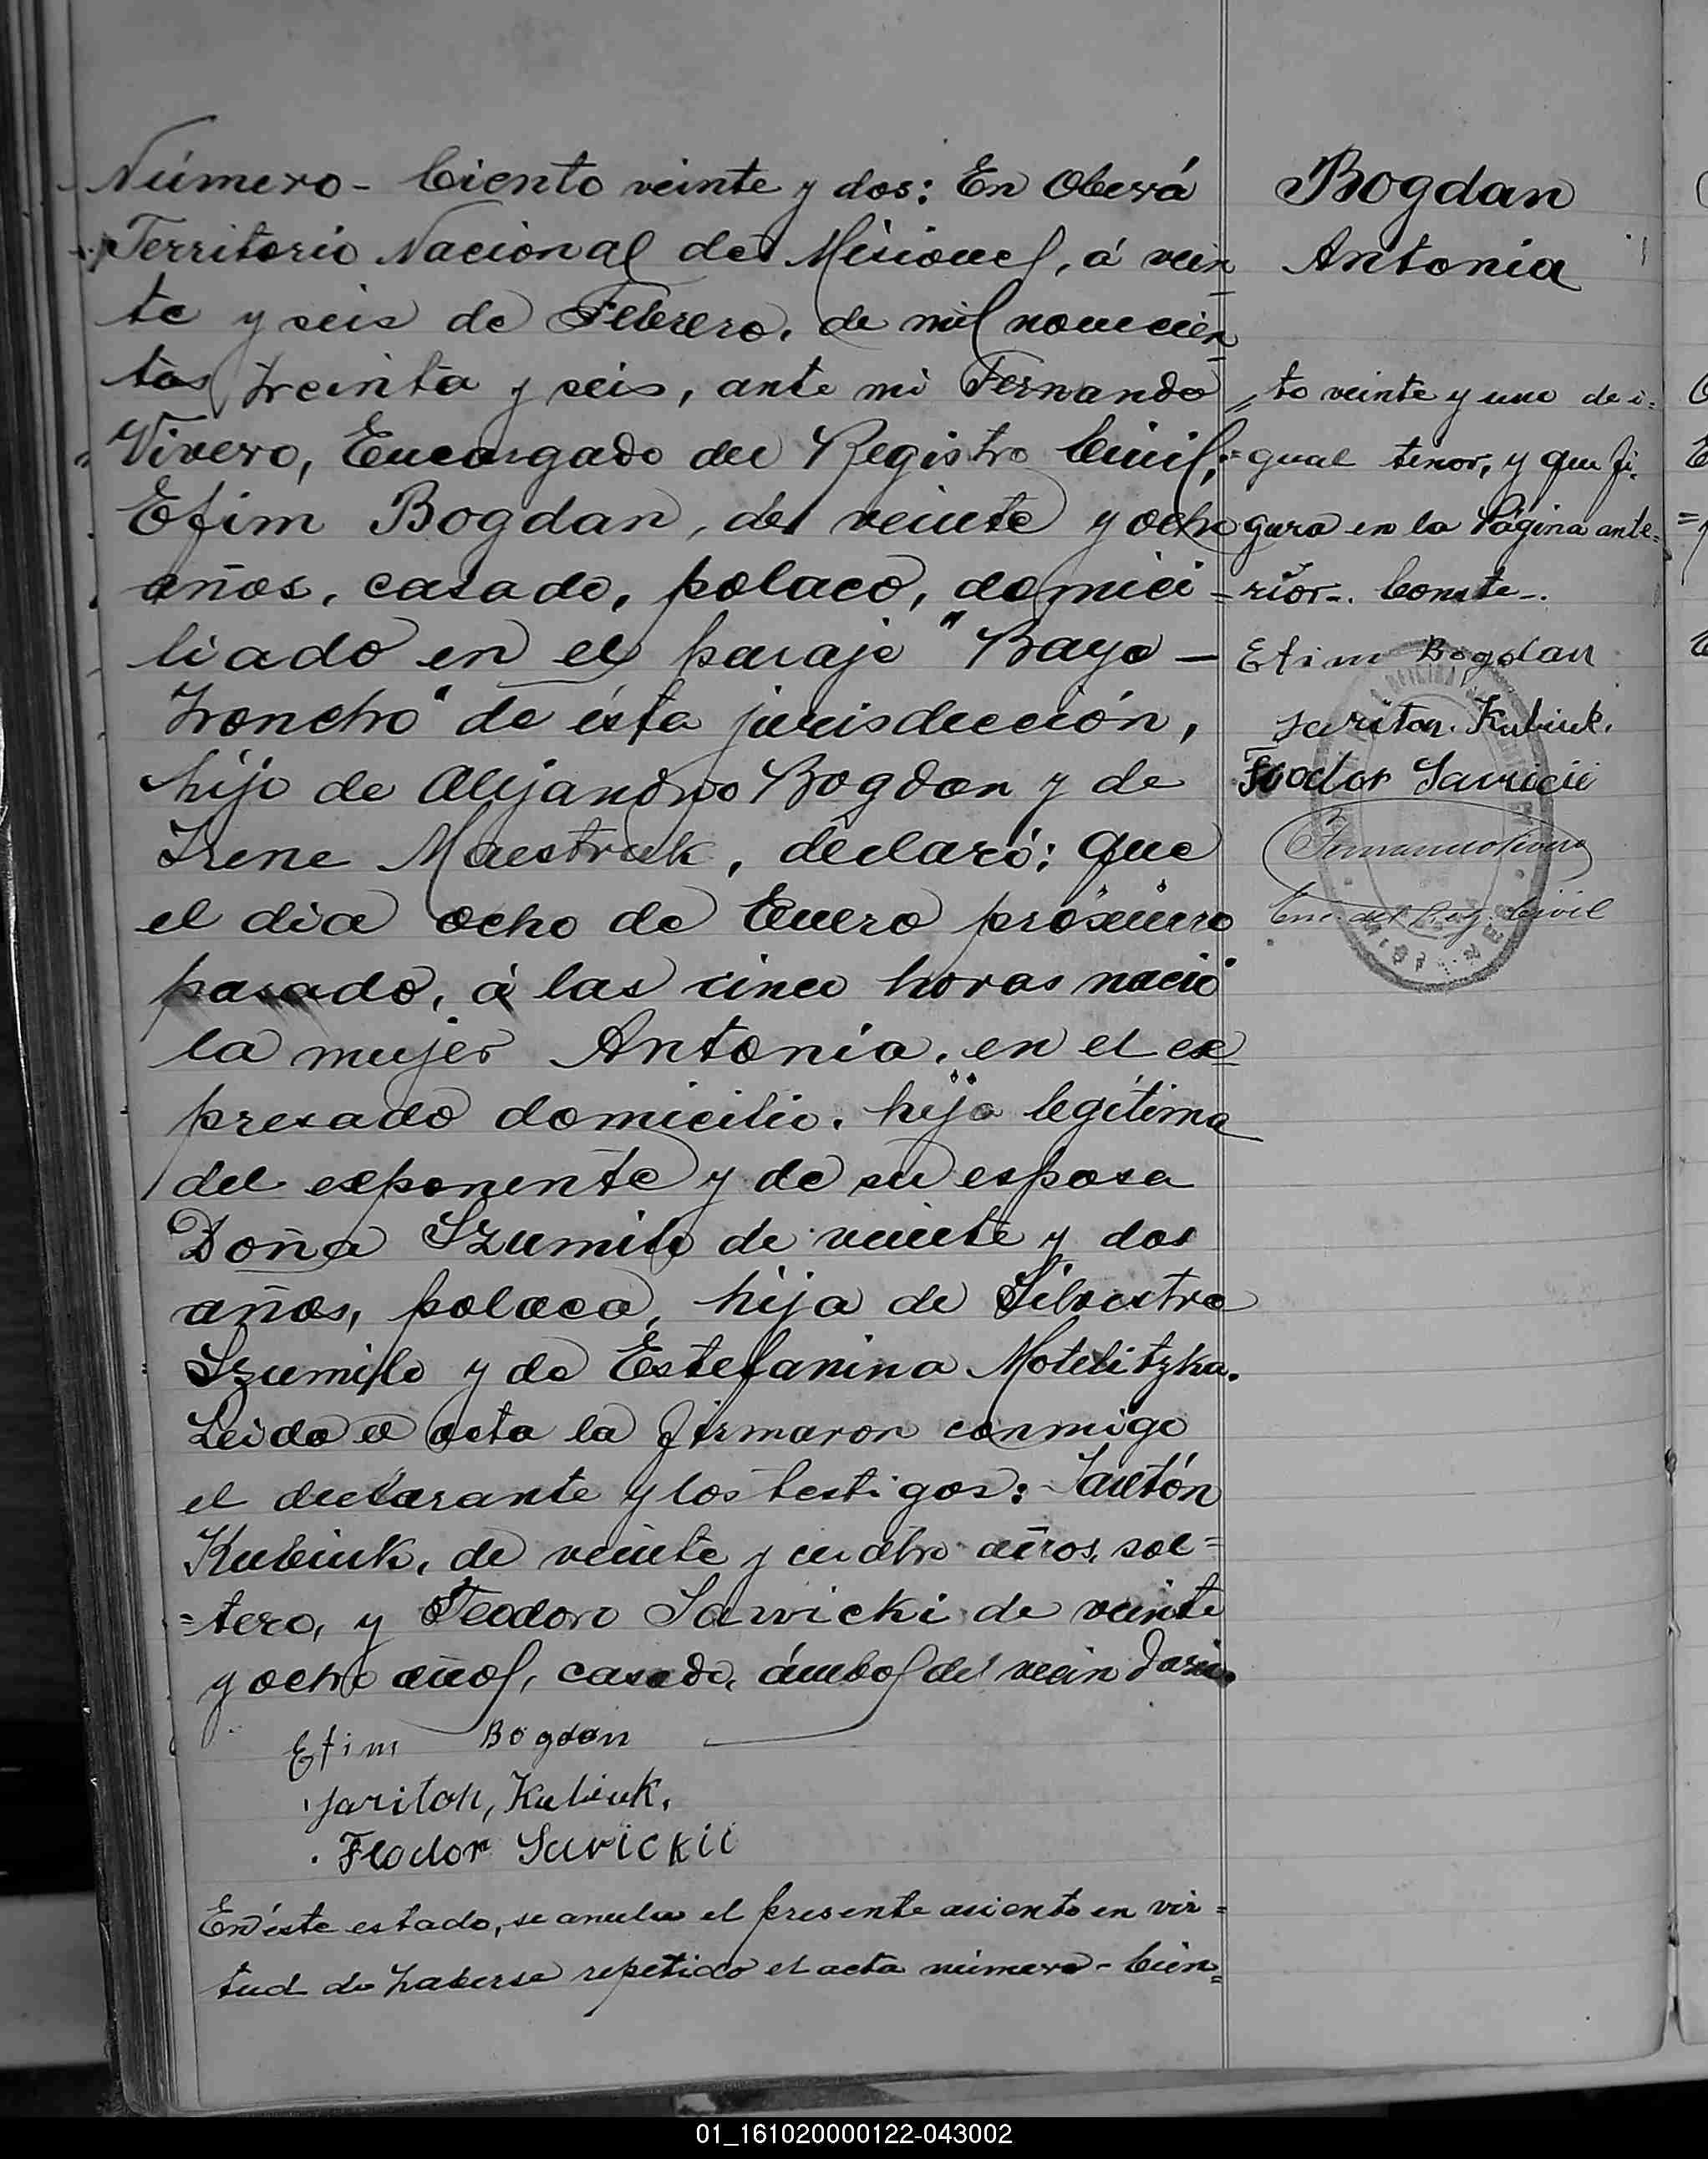 Número - Ciento veinte y dos: En Oberá
Territorio Nacional de Misiones, á vein
te y seis de Febrero, de mil novecien
tos treinta y seis, ante mi Fernando
Vivero, Encargado del Registro Civil;
Efim Bogdan, de veinte y ocho
años, casado, polaco, domici-
liado en el paraje "Bayo-
Troncho" de ésta jurisdicción,
hijo de Alejandro Bogdan y de
Irene Maestruk, declaró: que
el dia ocho de Enero próximo
pasado, á las cinco horas nació
la mujer Antonia, en el ex
presado domicilio, hija legítima
del exponente y de su esposa
Doña Szumilo de veinte y dos
años, polaca, hija de Silvestre
Szumilo y de Estefanina Motelitzka.
Leida el acta la firmaron conmigo
el declarante y los testigos:
Kubiuk, de veinte y cuatro años, sol=
=tero, y Teodoro Sawicki de veinte
y ocho años, casado, ámbos del vecindario.
Efim Bogdan
Jariton, Kubiuk.
Feodor Savickii
En éste estado, se anula el presente asiento en vir=
tud de haberse repetido el acta número - Cien=
Bogdan
Antonia
to veinte y uno de i=
gual tenor, y que fi-
gura en la Página ante=
rior-. Conste-.
Efim Bogdan
Jariton. Kubiuk.
Feodor Savickii
Fernando Vivero
Enc. del Reg. Civil
01_161020000122-043002